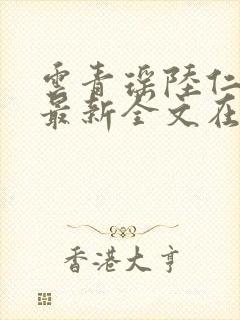 雲青瑶陸仁
最新全文在
香港大亨